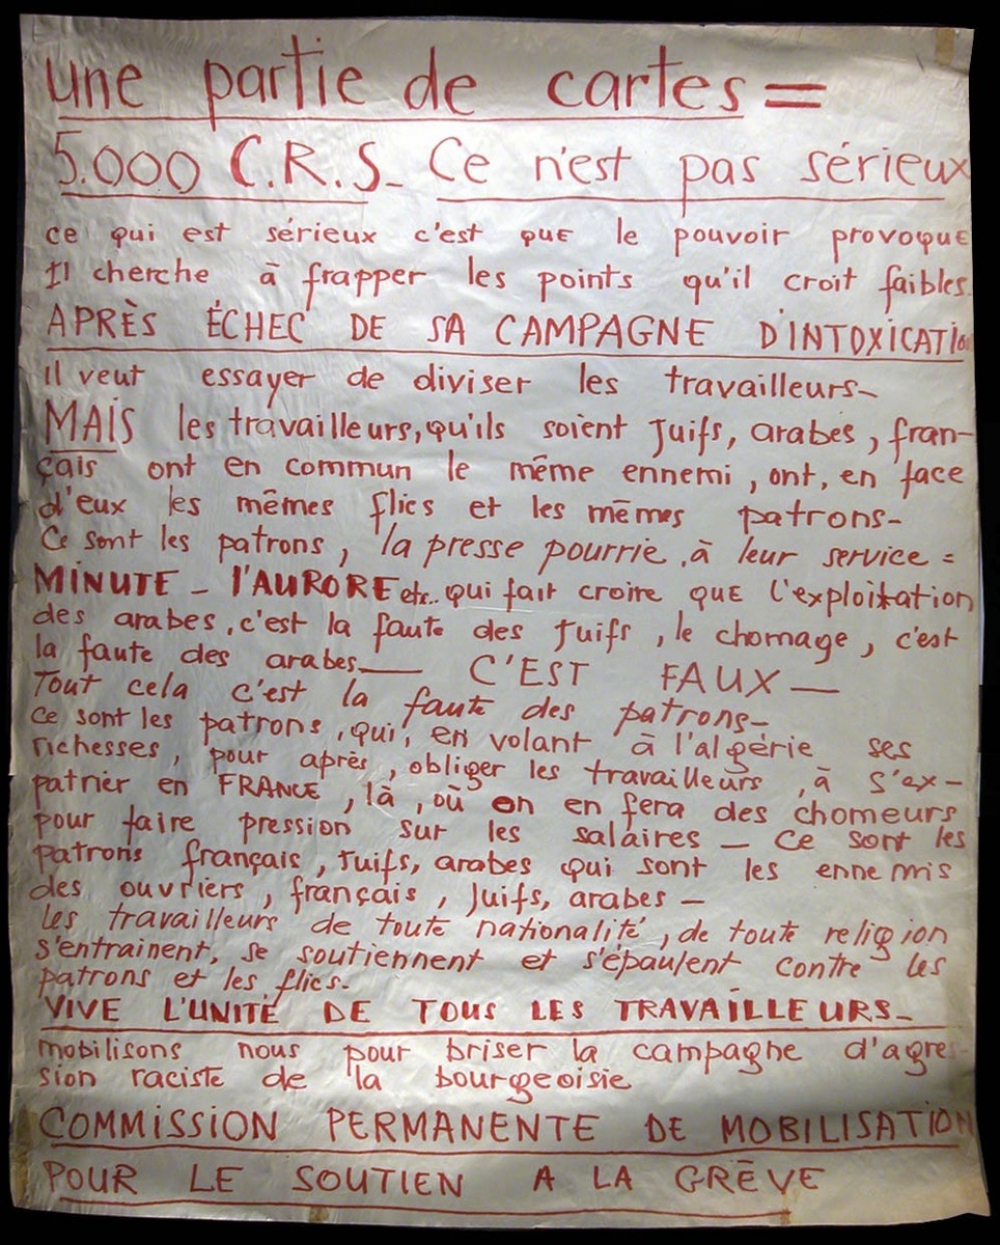 une partie de cartes =
5.000 C.R.S. Ce n'est pas sérieux
ce qui est sérieux c'est que le pouvoir provoque
Il cherche à frapper les points qu'il croit faibles.
APRÈS ÉCHEC DE SA CAMPAGNE D'INTOXICATION
il veut essayer de diviser les travailleurs-
MAIS les travailleurs, qu'ils soient Juifs, arabes, fran-
çais ont en commun le même ennemi, ont, en face
d'eux les mêmes flics et les mêmes patrons-
Ce sont les patrons, la presse pourrie, à leur service =
MINUTE - l'AURORE etc.. qui fait croire que l'exploitation
des arabes, c'est la faute des Juifs, le chomage, c'est
la faute des arabes— C'EST FAUX—
Tout cela c'est la faute des patrons-
Ce sont les patrons, qui, en volant à l'algérie ses
richesses, pour après, obliger les travailleurs, à s'ex-
patrier en FRANCE, là, où on en fera des chomeurs
pour faire pression sur les salaires - Ce sont les
patrons français, Juifs, arabes qui sont les ennemis
des ouvriers, français, Juifs, arabes -
les travailleurs de toute nationalité, de toute religion
s'entrainent, se soutiennent et s'épaulent contre les
patrons et les flics-
VIVE L'UNITÉ DE TOUS LES TRAVAILLEURS-
mobilisons nous pour briser la campagne d'agres-
sion raciste de la bourgeoisie
COMMISSION PERMANENTE DE MOBILISATION
POUR LE SOUTIEN A LA GRÊVE